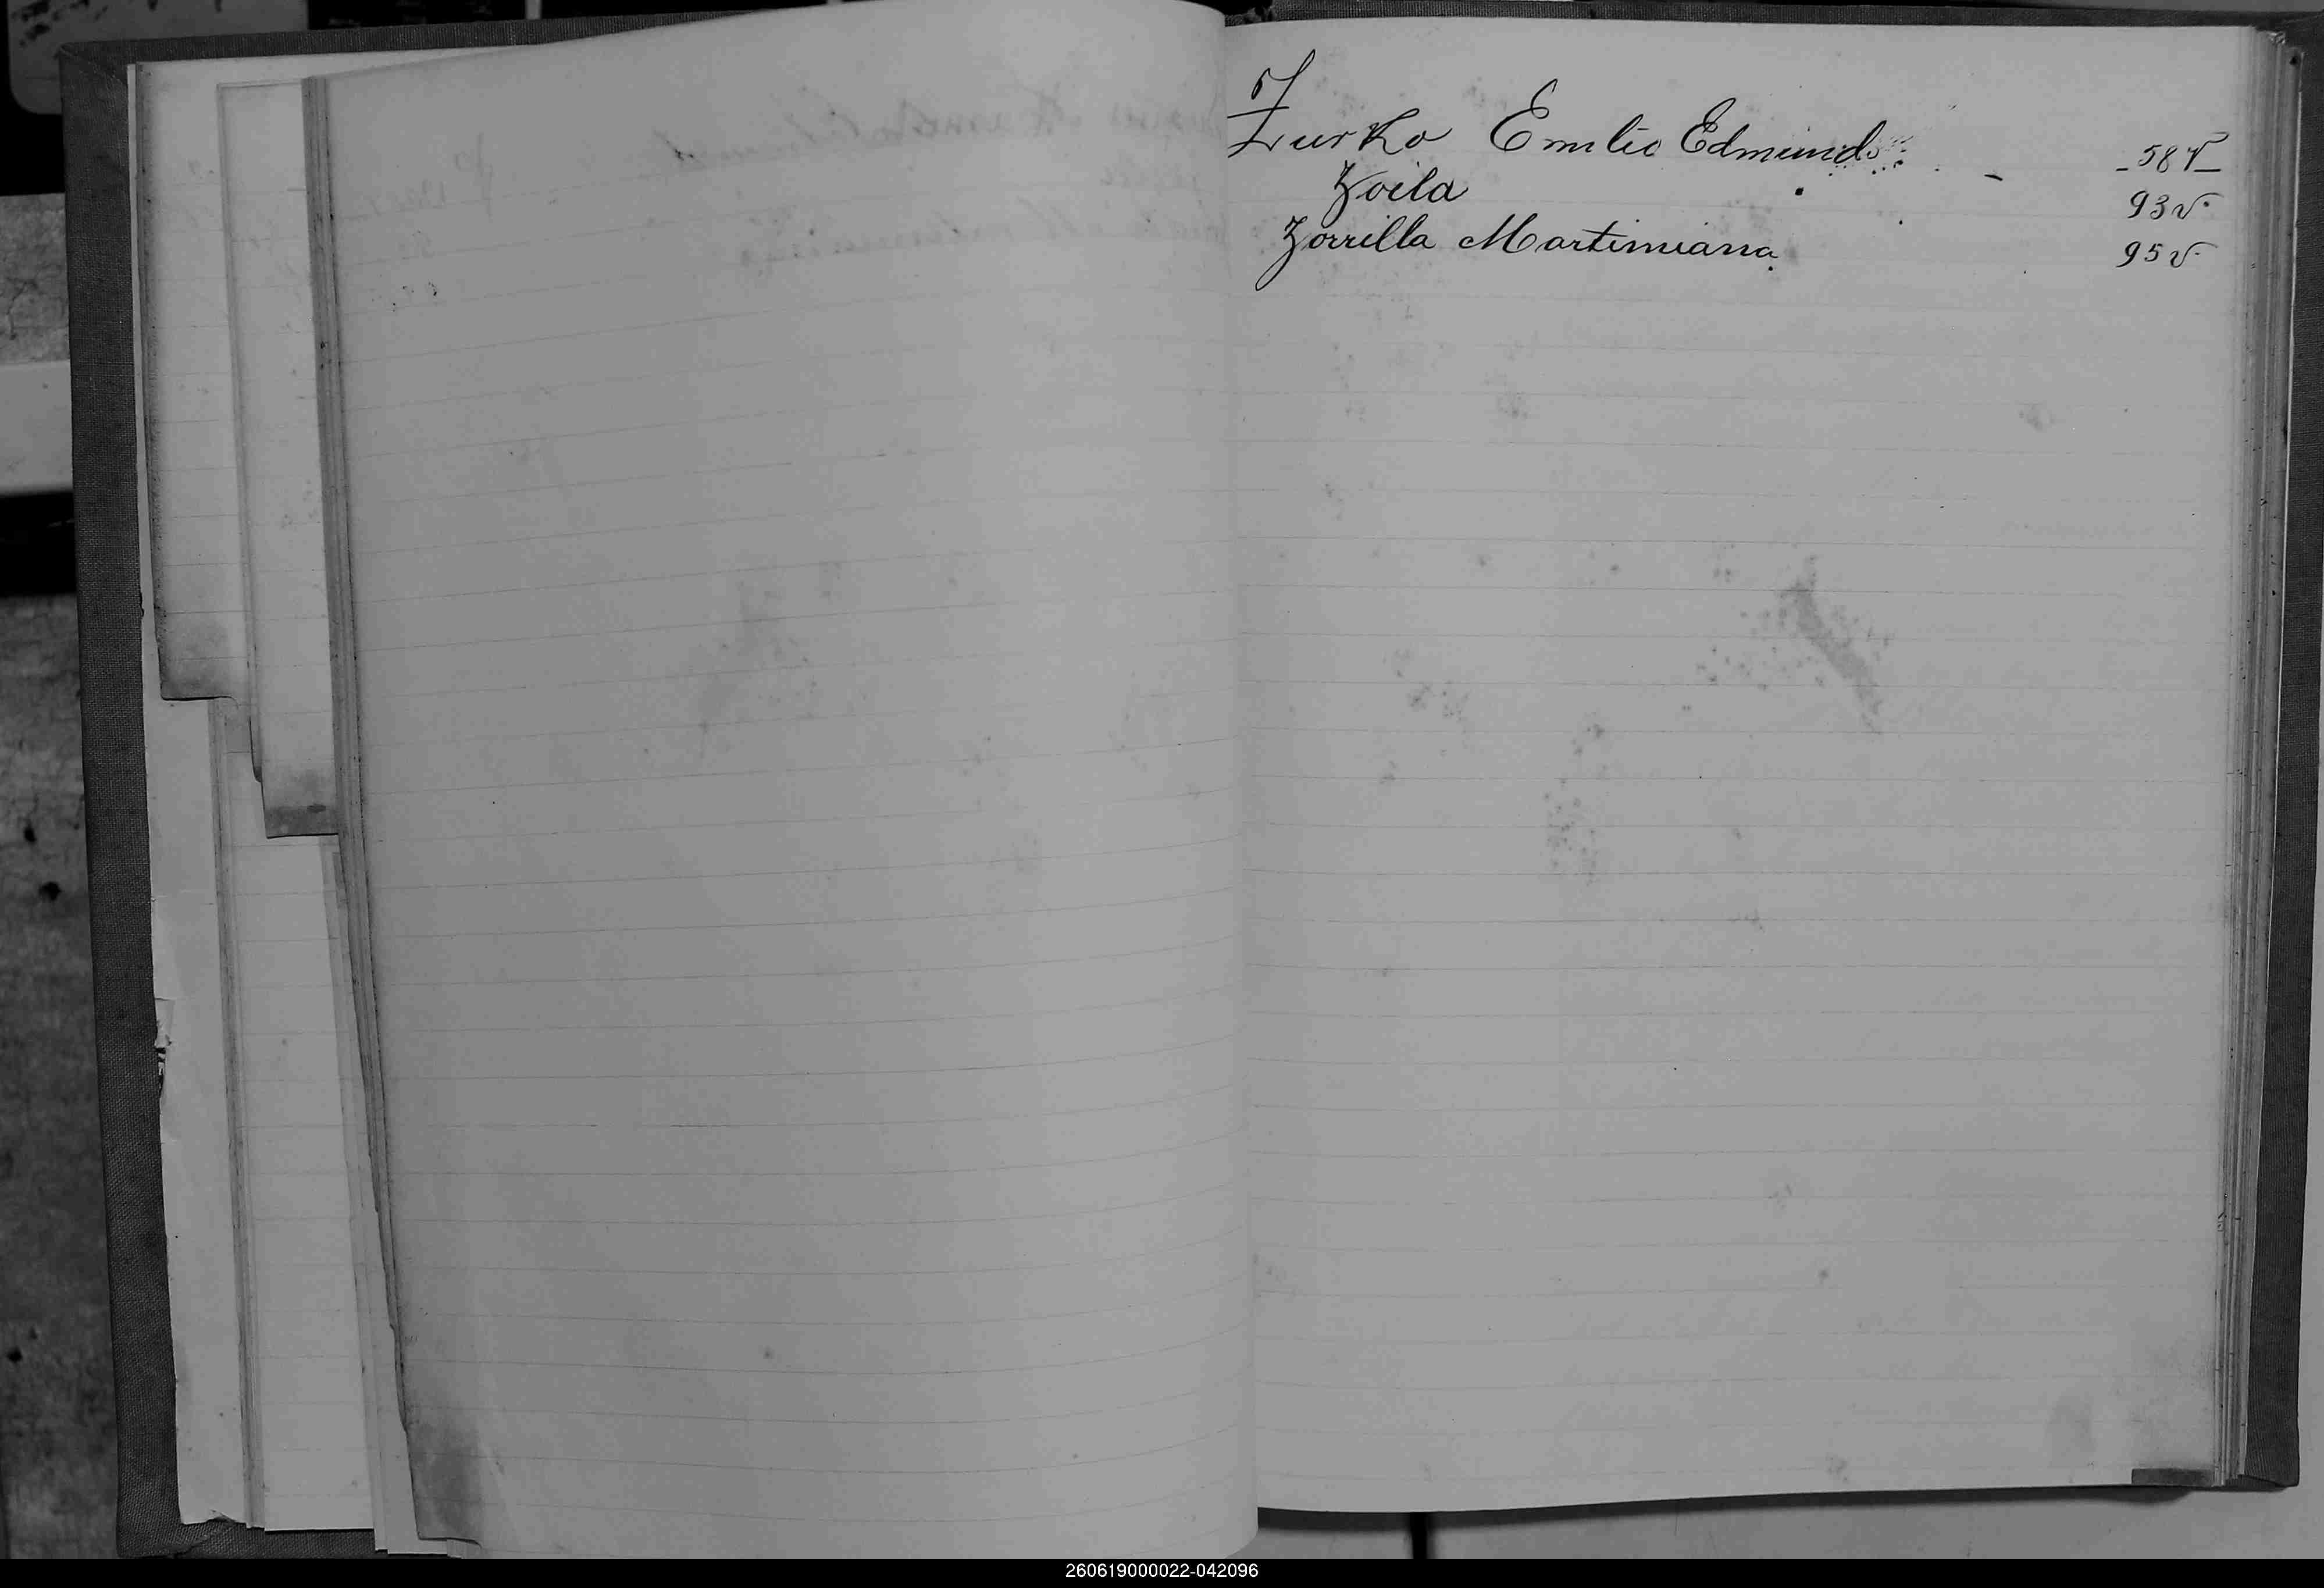 Zurko Emilio Edmundo - 58 V
Zoila 93 v.
Zorrilla Martimiana 95 v.
260619000022-042096